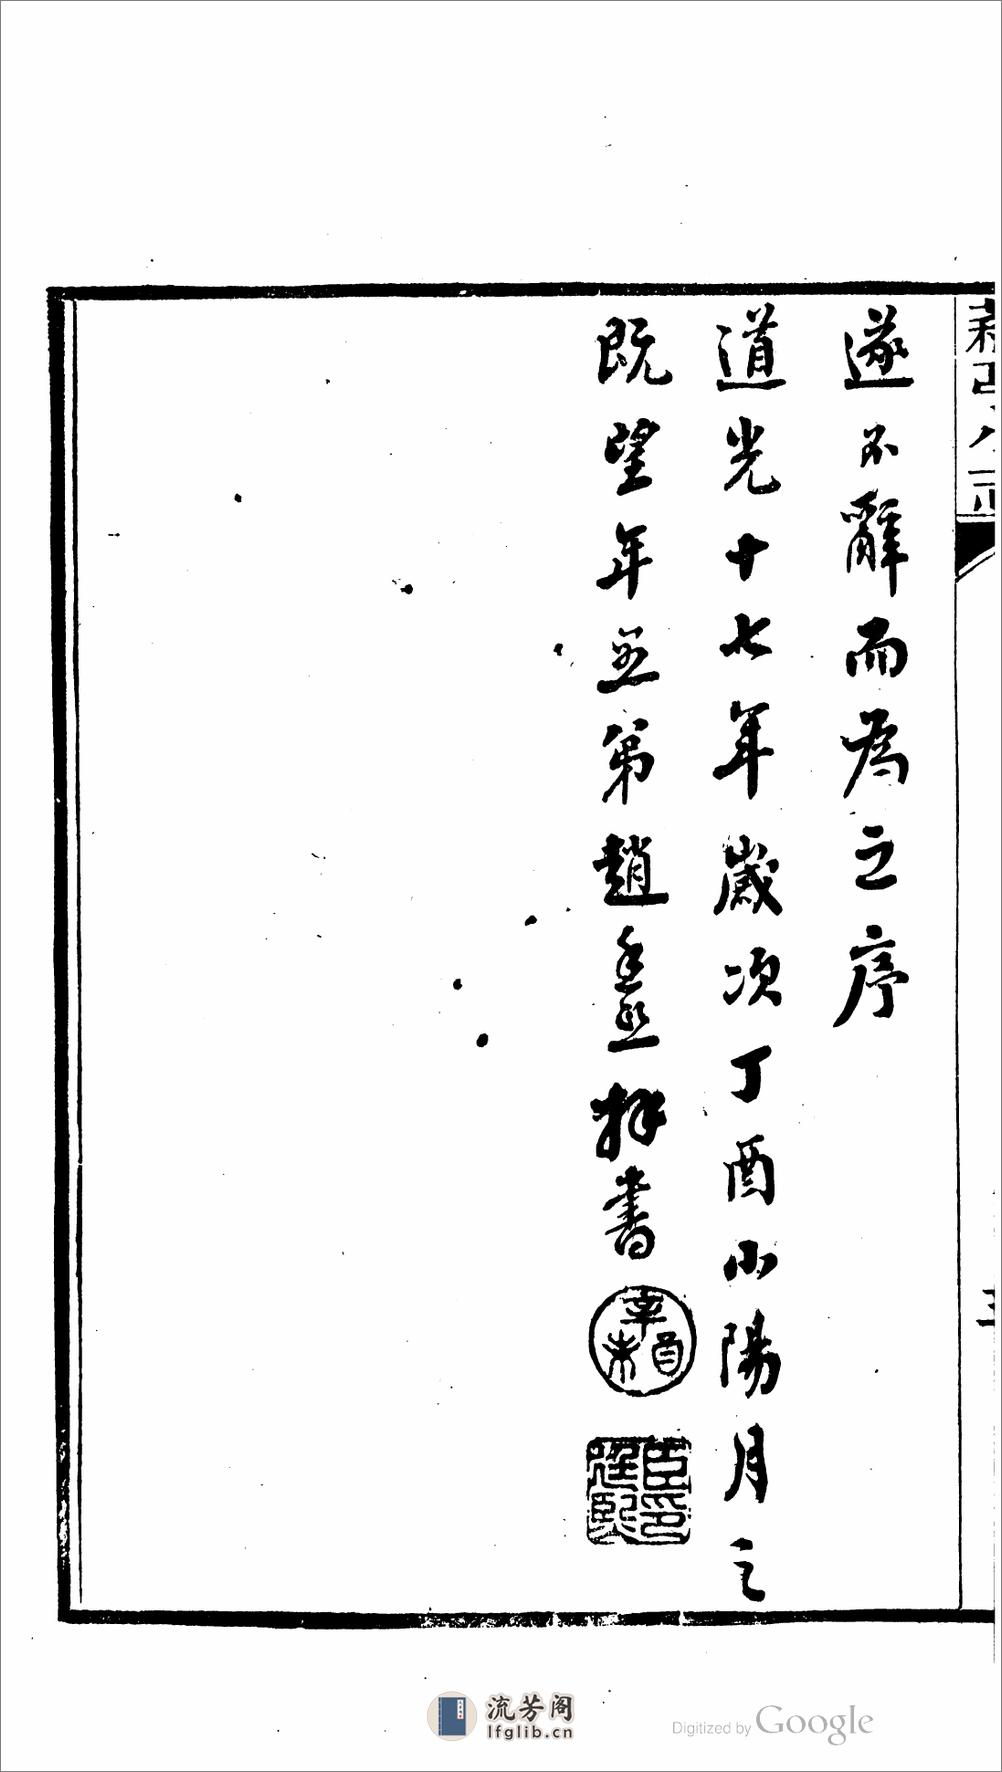 遂不辭而為之序
道光十七年歲次丁酉小陽月之
既望年愚第趙廷熙拜書
臣印廷熙
流芳阁
lfglib.cn
Digitized by Google